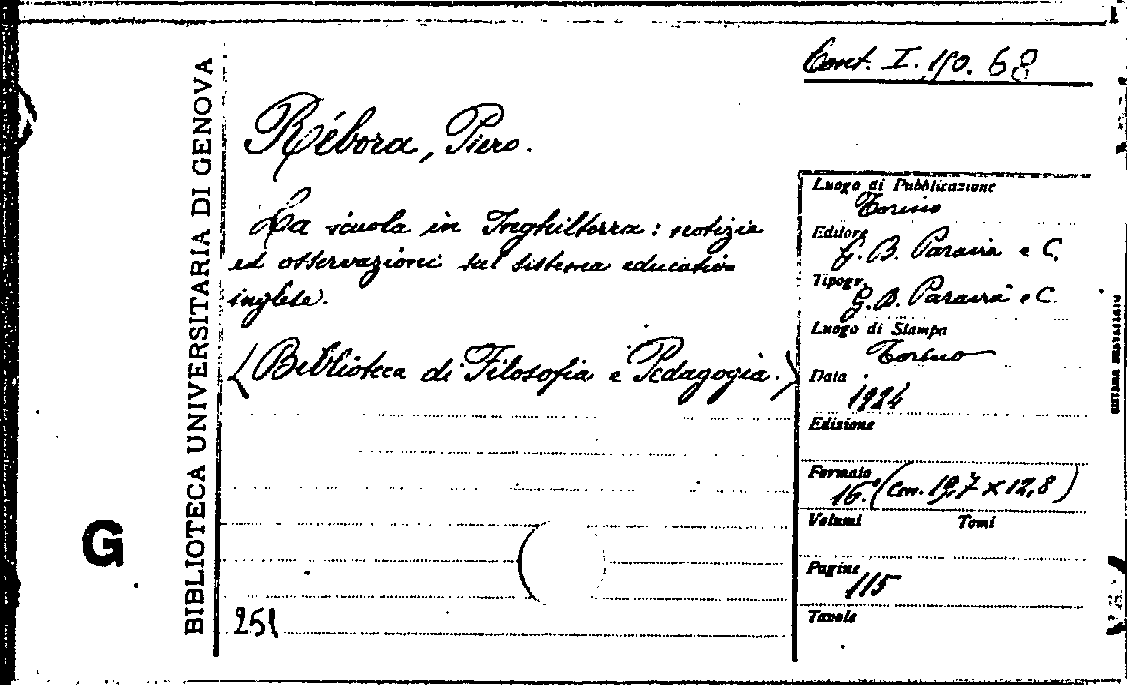 Cont. I. 150. 68
BIBLIOTECA UNIVERSITARIA DI GENOVA
Rébora, Piero.
La scuola in Inghilterra: notizie
ed osservazioni sul sistema educativo
inglese.
(Biblioteca di Filosofia e Pedagogia.)
Luogo di Pubblicazione
Torino
Editore
G. B. Paravia e C.
Tipogr.
G. B. Paravia e C.
Luogo di Stampa
Torino
Data
1924
Edizione
Formato
16.° (cm. 19,7 x 12,8)
Volumi Tomi
Pagine
115
Tavole
G
251